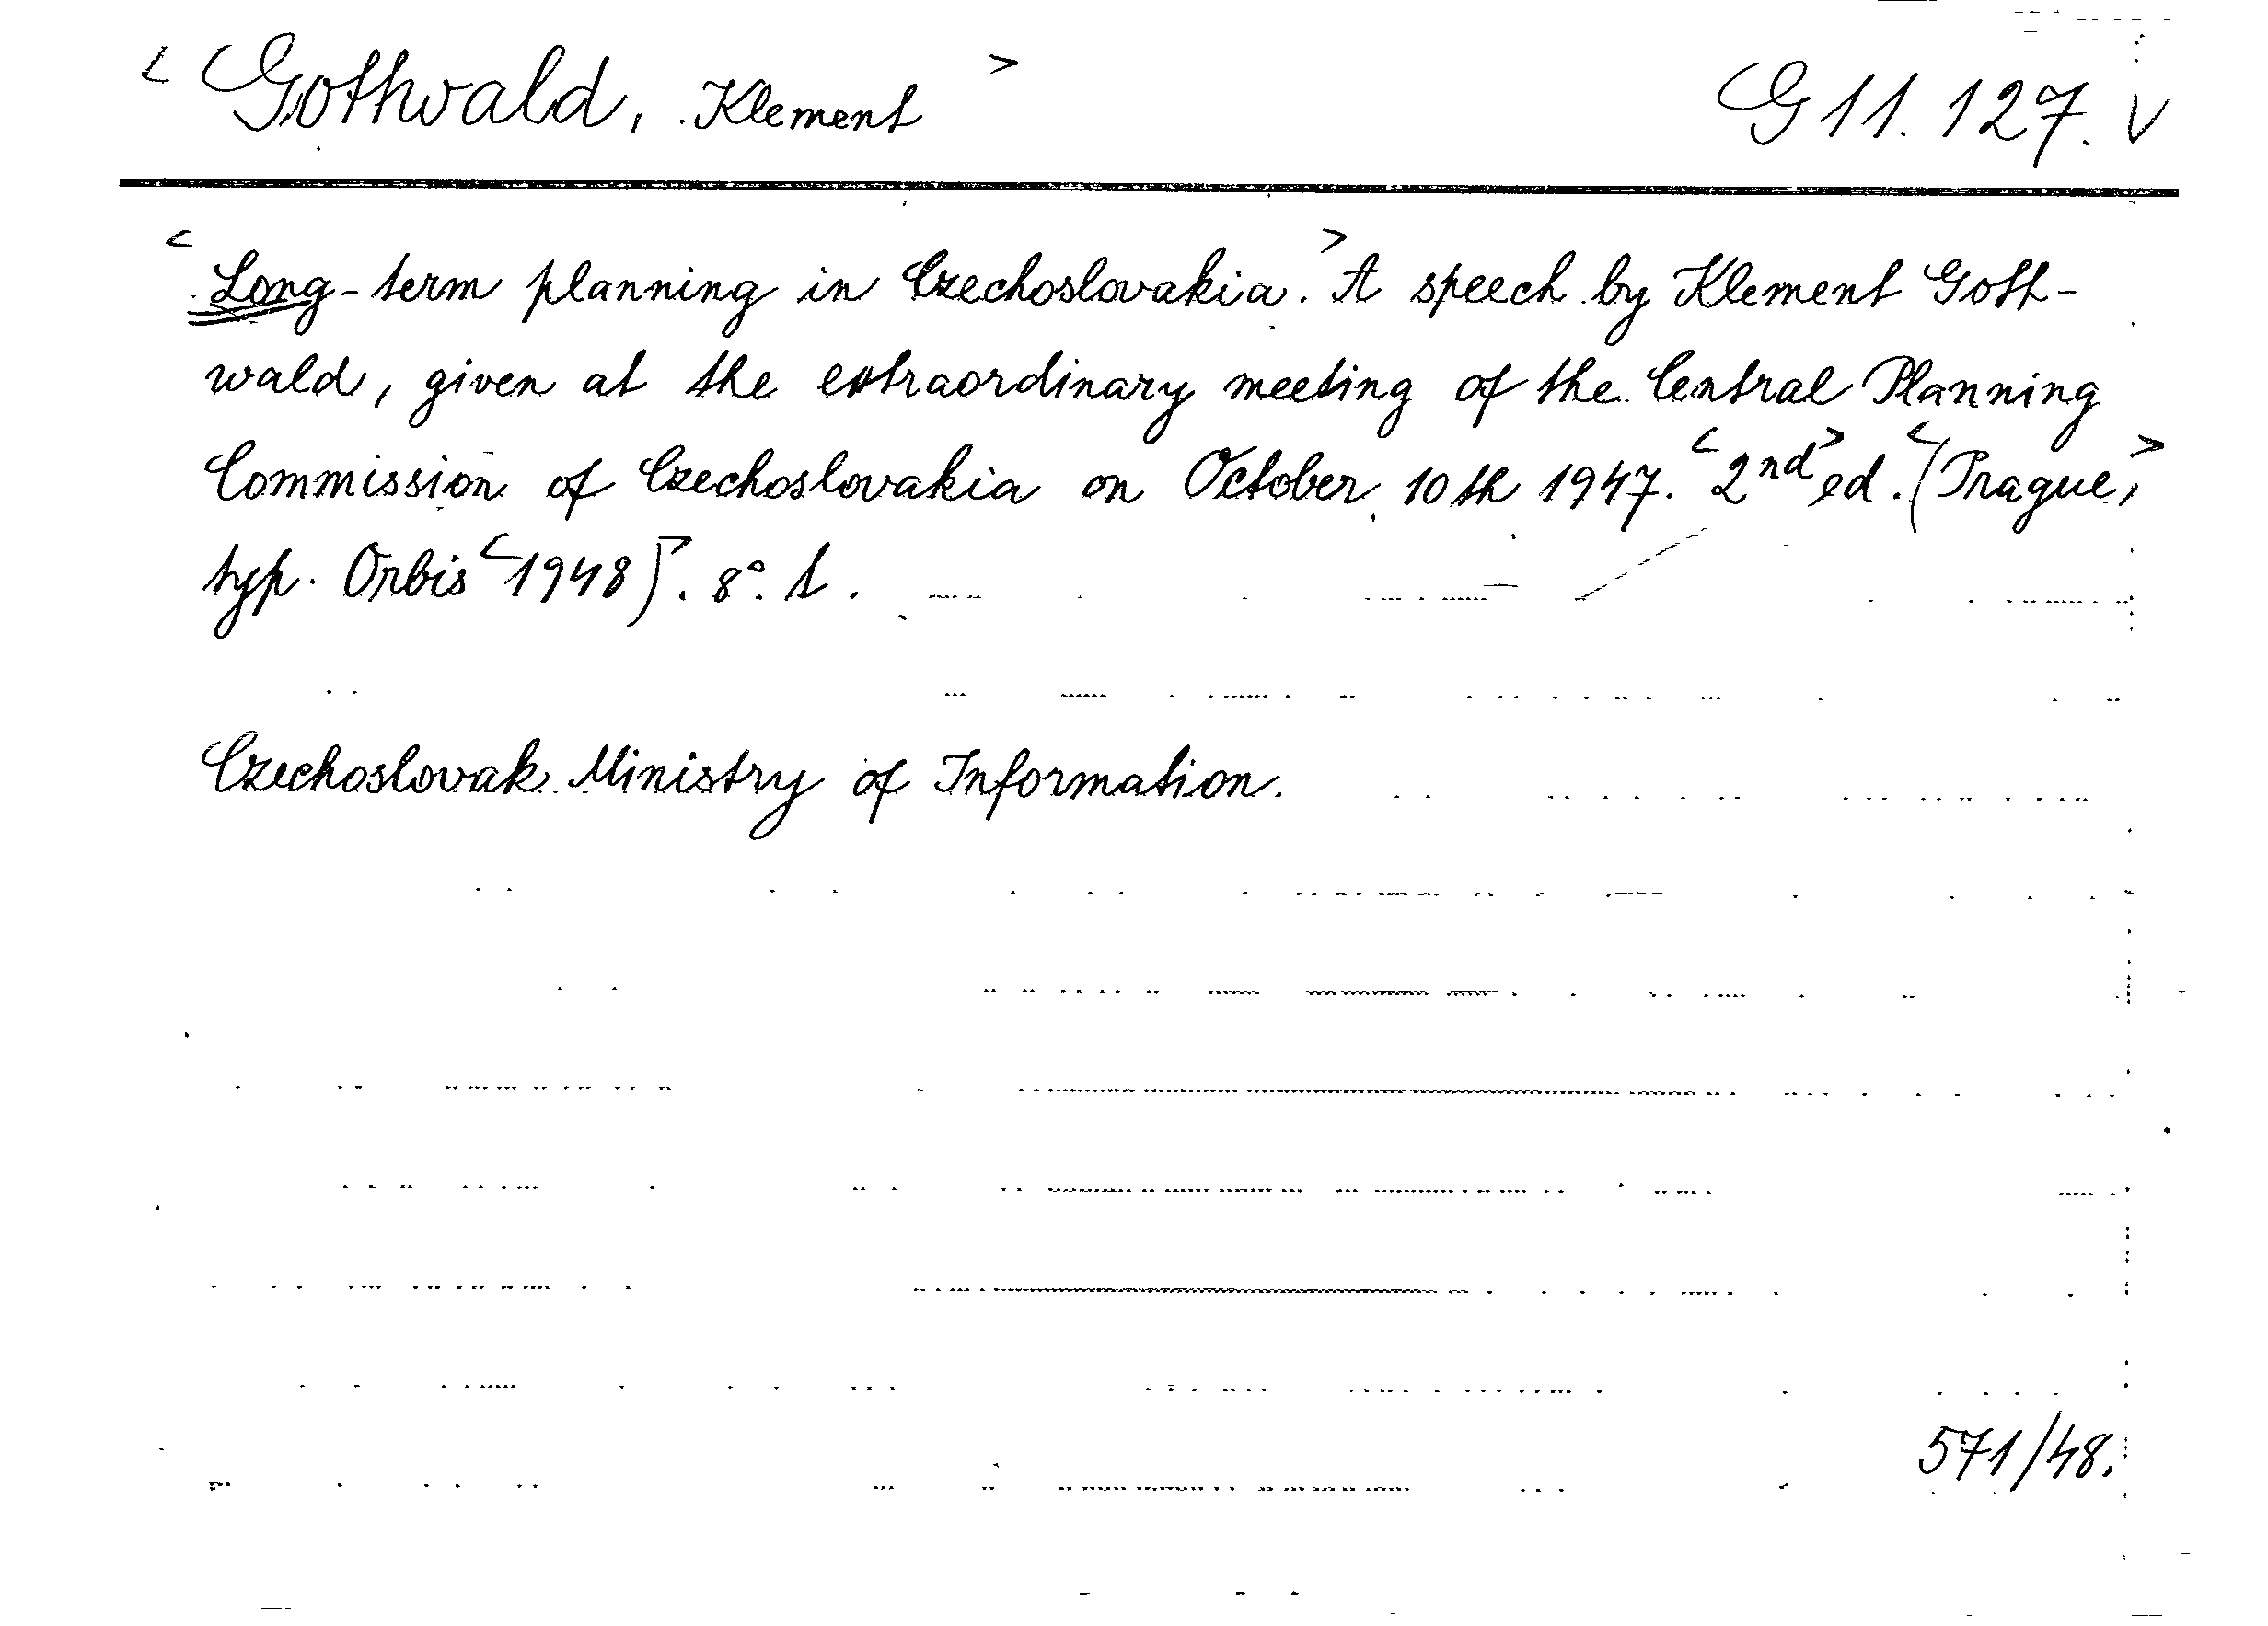 < Gottwald, Klement > G 11.127. V
< Long-term planning in Czechoslovakia. > A speech by Klement Gott-
wald, given at the extraordinary meeting of the Central Planning
Commission of Czechoslovakia on October 10th 1947. < 2nd > ed. < (Prague, >
typ. Orbis < 1948). > 8°. t.
Czechoslovak Ministry of Information.
571/48.